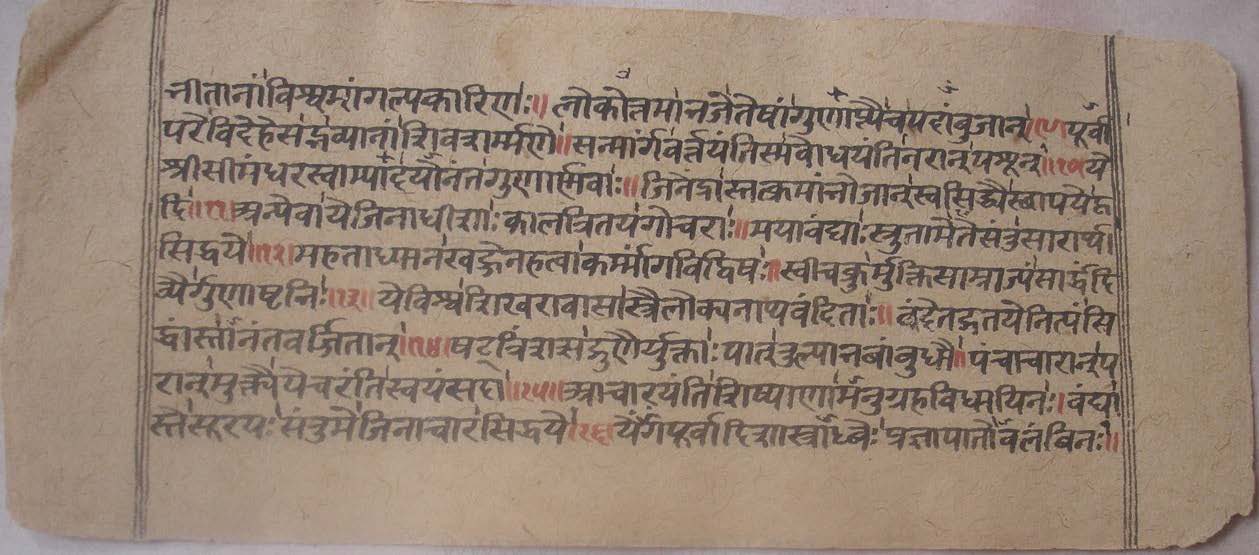 नीतानां विश्वमांगल्यकारिणः ॥ लोकोत्तमान् जेतेषां गुणाप्त्यै च पदांबुजान् ॥९॥ पूर्वा
परविदेहे सद्भव्यानां शिवशर्म्मणे ॥ सन्मार्गं वर्त्तयंति स्म बोधयंति नरान् पशून् ॥१०॥ ये
श्रीसीमंधरस्वाम्याद्या येऽनंतगुणार्मवाः ॥ जिनेंद्रास्तत्क्रमांनौजान् स्वसिद्ध्यै स्थापये हृ
दि ॥११॥ अन्ये वा ये जिनाधीशाः कालत्रितयगोचराः ॥ मया वंद्याः स्तुता मे ते संतु सारार्थ
सिद्धये ॥१२॥ महता ध्यानखड्गेन हत्वा कर्म्मांगविद्विषः ॥ स्वीचक्रुर्मुक्तिसाम्राज्यं सार्द्धं दि
व्यैर्गुणाष्टभिः ॥१३॥ ये विश्वशिखरावासास्त्रैलोक्यनाथवंदिताः ॥ वंदे तद्गतये नित्यं सि
द्धांस्तानंतवर्जितान् ॥१४॥ षट्त्रिंशसद्गुणैर्युक्ताः पातृतुल्या भवांबुधौ ॥ पंचाचारान् प
रान् मुक्त्यै ये चरंति स्वयं सदा ॥१५॥ आचारयंति शिष्याणामनुग्रहविधायिनः ॥ वंद्या
स्ते सूरयः संतु मे जिनाचारसिद्धये ॥१६॥ येंगपूर्वादिशास्त्राब्धेः प्रज्ञापोतावलंबिनः ॥